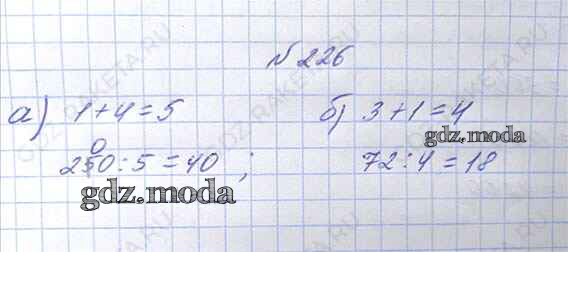 № 226
а) 1+4=5   б) 3+1=4
200:5=40;   72:4=18
gdz.moda
gdz.moda
GDZ-RAKETA.RU